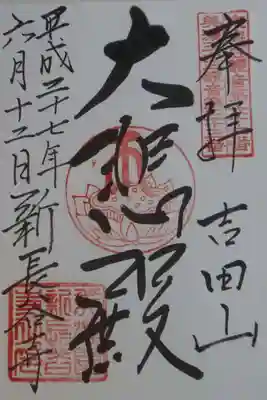 奉拝
吉田山
大悲殿
平成二十七年
六月十二日新長谷寺